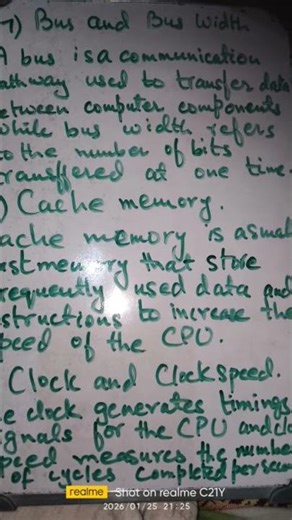 7) Bus and Bus Width
A bus is a communication
pathway used to transfer data
between computer components
while bus width refers
to the number of bits
transffered at one time.
) Cache memory.
ache memory is a small
ast memory that store
requently used data and
structions to increase the
peed of the CPU.
Clock and Clock speed.
e clock generates timings
gnals for the CPU and clo
peed measures the number
of cycles completed per secon
realme Shot on realme C21Y
2026/01/25 21:25